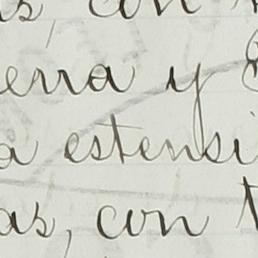 as con
erra y
a estensi
as, con t